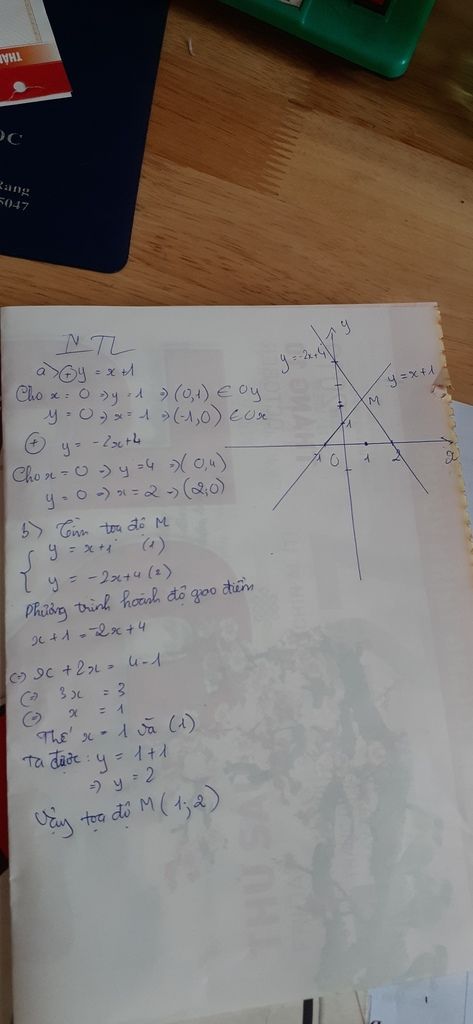 THÀN
OC
Rang
5047
IV TL
a) + y = x+1
Cho x = 0 => y = 1 => (0,1) ∈ Oy
y = 0 => x = 1 => (-1,0) ∈ Ox
+ y = -2x+4
Cho x = 0 => y = 4 => (0,4)
y = 0 => x = 2 => (2;0)
b) Tìm toạ độ M
{ y = x+1 (1)
{ y = -2x+4 (2)
Phương trình hoành độ giao điểm
x+1 = -2x+4
<=> x + 2x = 4-1
<=> 3x = 3
<=> x = 1
Thế x = 1 và (1)
Ta được: y = 1+1
=> y = 2
Vậy toạ độ M (1;2)
y
y = -2x+4
y = x+1
M
1
-1 0 1 2 x
THU SA